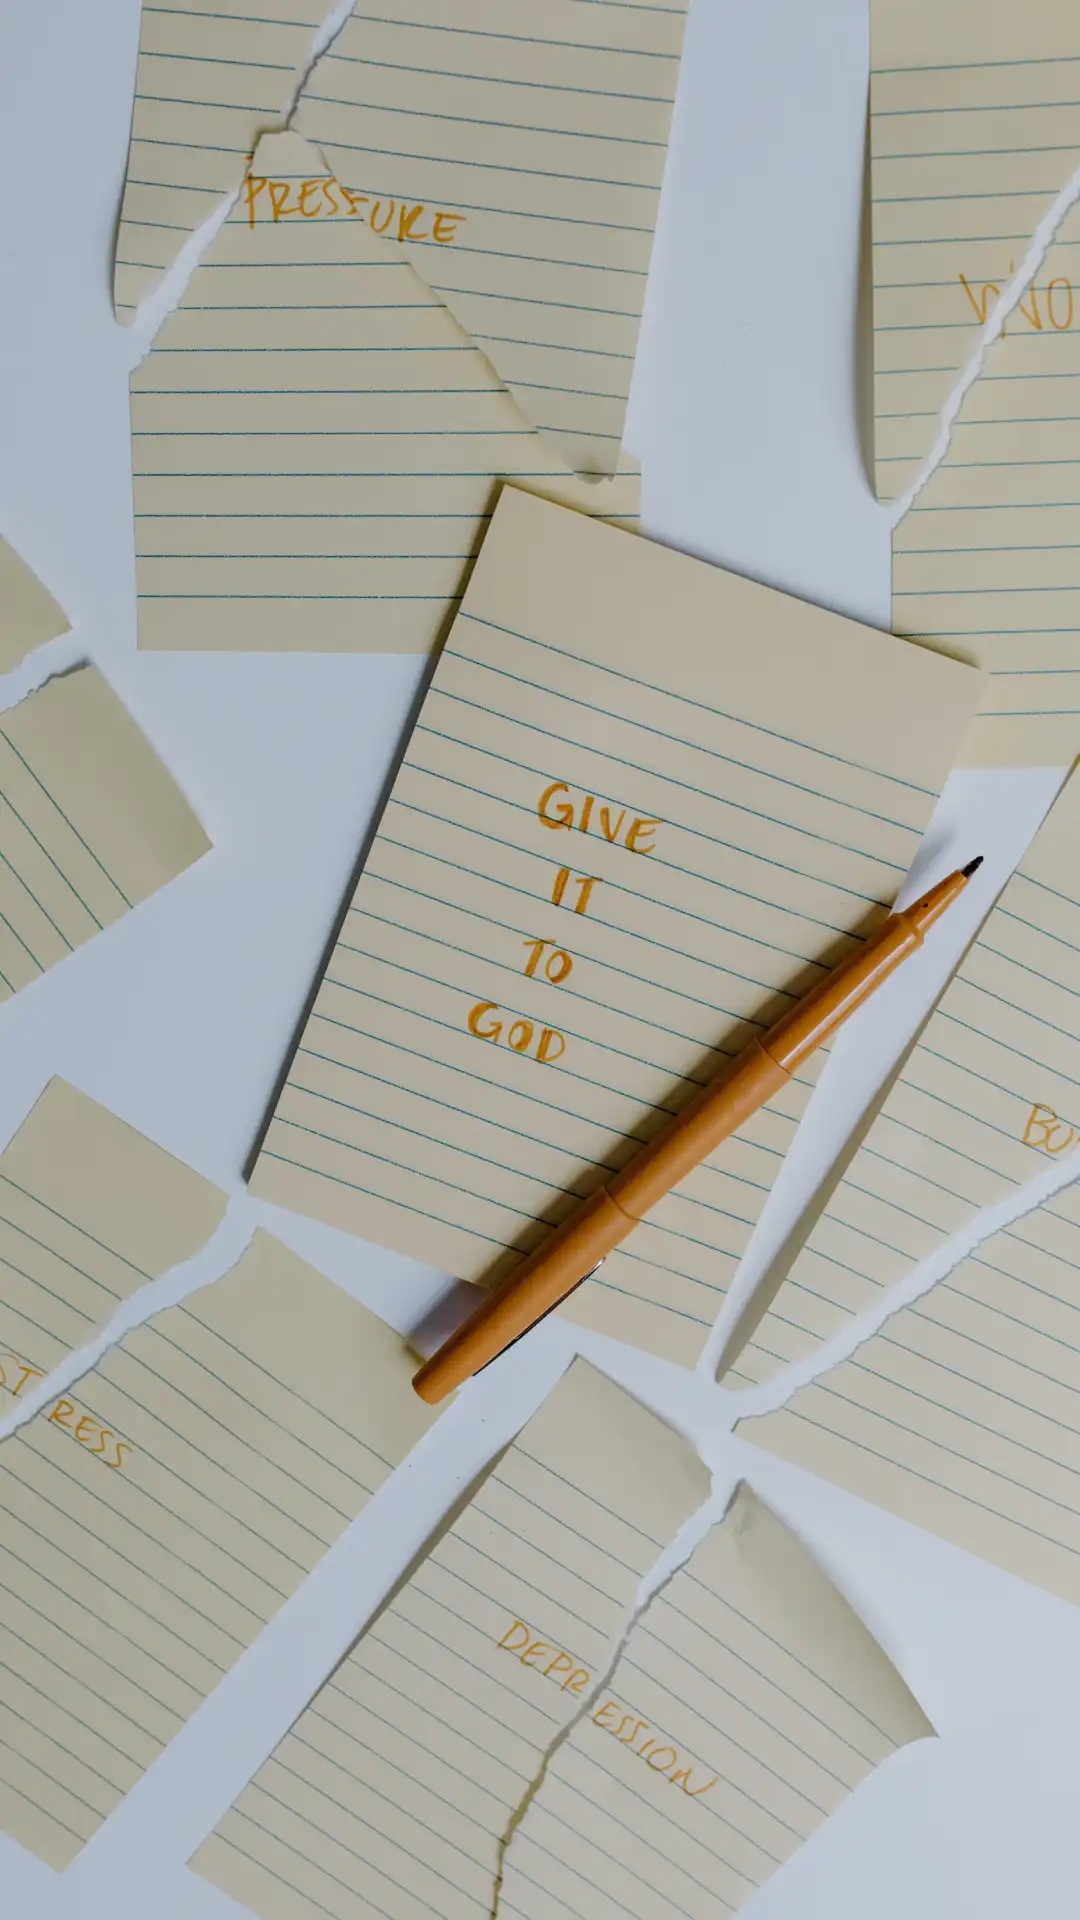 PRESSURE
GIVE
IT
TO
GOD
STRESS
DEPRESSION